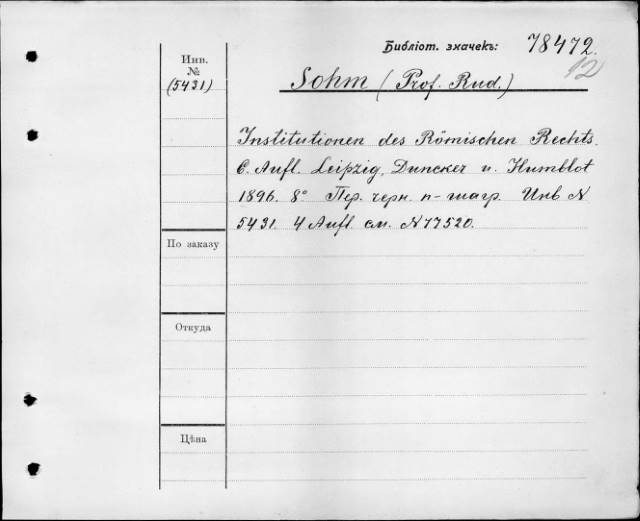 Библіот. значекъ: 78472.
12
Инв.
№
(5431)
Sohm (Prof. Rud.)
Institutionen des Römischen Rechts.
6. Aufl. Leipzig, Duncker u. Humblot
1896. 8° Пер. черн. п-шагр. Инв N
5431. 4 Aufl. см. N 77520.
По заказу
Откуда
Цѣна